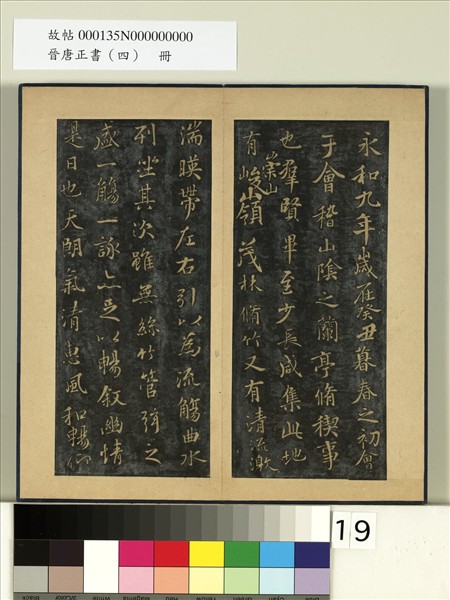 故帖 000135N000000000
晉唐正書（四） 冊
永和九年歲在癸丑暮春之初會
于會稽山陰之蘭亭脩稧事
也羣賢畢至少長咸集此地
有崇山峻領茂林脩竹又有清流激
湍暎帶左右引以為流觴曲水
列坐其次雖無絲竹管弦之
盛一觴一詠亦足以暢敘幽情
是日也天朗氣清惠風和暢仰
19
Black
3/Color
White
Magenta
Red
Yellow
Green
Cyan
Blue